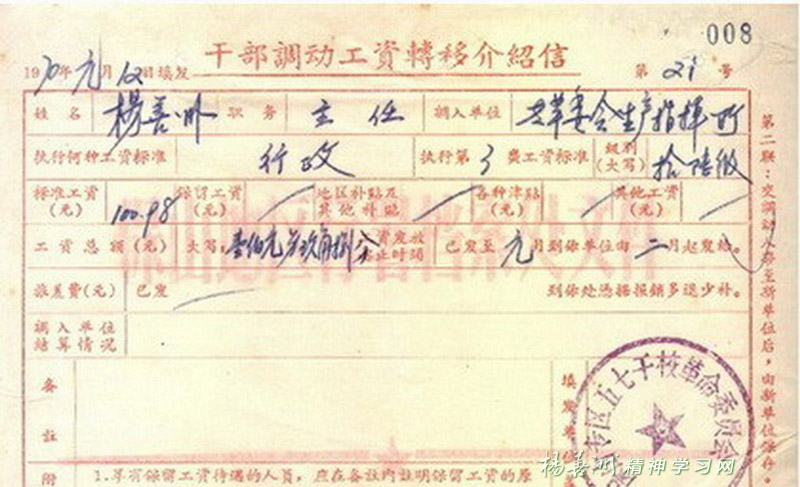 008
干部調动工資轉移介紹信
1970年元月12日填发 第21号
姓名 楊善洲 职务 主任 調入单位 革委会生产指揮所
执行何种工資标准 行政 执行第3类工資标准 級别(大写) 拾陆级
标准工資(元) 100.98 保留工資(元) 地区补貼及其他补貼 各种津貼(元) 其他工資(元)
工資总額(元) 大写: 壹佰元零玖角捌分 工資发放起止时間 已发至元月到你单位由二月起发給。
旅差費(元) 已发 到你处憑据报銷多退少补。
調入单位結算情况
备註
填发单位
五七干校革命委員会
附 1.享有保留工資待遇的人員,应在备註內註明保留工資的原
第二联:交調动人帶至新单位后,由新单位保存。
楊善洲精神学习网